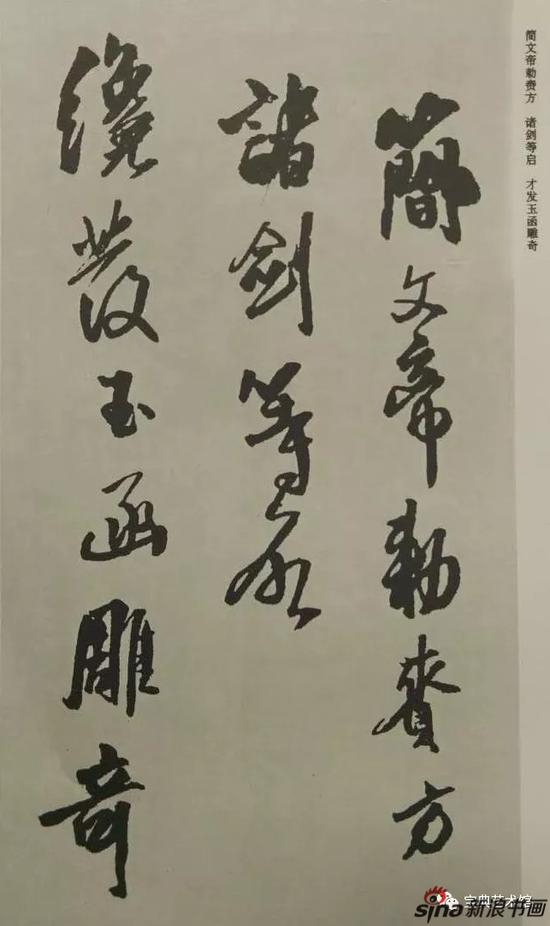 简文帝勅赉方　诸剑等启　才发玉函雕奇
簡文帝勅賚方
諸劍等啓
纔發玉函雕奇
宝典艺术馆
sina新浪书画